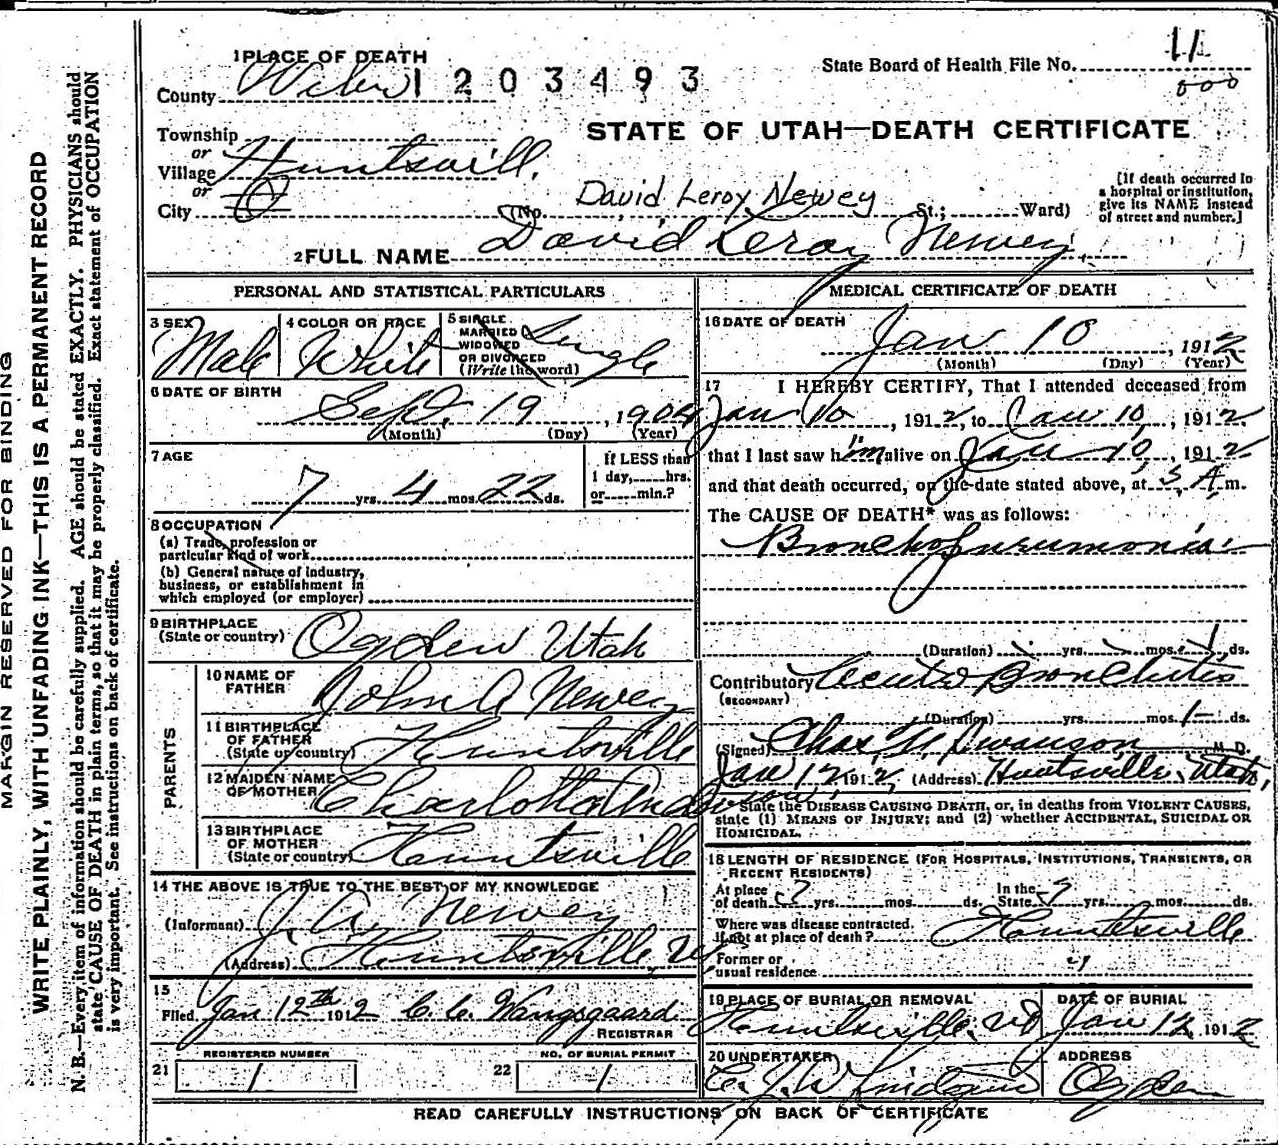 MARGIN RESERVED FOR BINDING
WRITE PLAINLY, WITH UNFADING INK—THIS IS A PERMANENT RECORD
N. B.—Every item of information should be carefully supplied. AGE should be stated EXACTLY. PHYSICIANS should
state CAUSE OF DEATH in plain terms, so that it may be properly classified. Exact statement of OCCUPATION
is very important. See instructions on back of certificate.
1 PLACE OF DEATH
County Weber 1203493
State Board of Health File No. 11
000
Township
or
Village Huntsvill.
or
City
STATE OF UTAH—DEATH CERTIFICATE
(No. St.; Ward)
David Leroy Newey
[If death occurred in
a hospital or institution,
give its NAME instead
of street and number.]
2 FULL NAME David Leroy Newey
PERSONAL AND STATISTICAL PARTICULARS
3 SEX Male
4 COLOR OR RACE White
5 SINGLE
MARRIED
WIDOWED
OR DIVORCED
(Write the word) Single
6 DATE OF BIRTH
Sept. 19, 1904
(Month) (Day) (Year)
7 AGE
7 yrs. 4 mos. 22 ds.
If LESS than
1 day, hrs.
or min.?
8 OCCUPATION
(a) Trade, profession or
particular kind of work
(b) General nature of industry,
business, or establishment in
which employed (or employer)
9 BIRTHPLACE
(State or country) Ogden Utah
PARENTS
10 NAME OF
FATHER John A Newey
11 BIRTHPLACE
OF FATHER
(State or country) Huntsville
12 MAIDEN NAME
OF MOTHER Charlotta
13 BIRTHPLACE
OF MOTHER
(State or country) Huntsville
14 THE ABOVE IS TRUE TO THE BEST OF MY KNOWLEDGE
(Informant) J. A. Newey
(Address) Huntsville, Ut
15
Filed Jan 12th 1912 C. C. Wangsgaard
REGISTRAR
REGISTERED NUMBER
21 1
NO. OF BURIAL PERMIT
22 1
MEDICAL CERTIFICATE OF DEATH
16 DATE OF DEATH
Jan 10, 1912
(Month) (Day) (Year)
17 I HEREBY CERTIFY, That I attended deceased from
Jan 10, 1912, to Jan 10, 1912,
that I last saw him alive on Jan 10, 1912
and that death occurred, on the date stated above, at 5 A m.
The CAUSE OF DEATH* was as follows:
Bronchopneumonia
(Duration) yrs. mos. 1 ds.
Contributory Acute Bronchitis
(SECONDARY)
(Duration) yrs. mos. 1 ds.
(Signed) Chas Swanson M. D.
Jan 12 1912, (Address) Huntsville, Utah,
State the DISEASE CAUSING DEATH, or, in deaths from VIOLENT CAUSES,
state (1) MEANS OF INJURY; and (2) whether ACCIDENTAL, SUICIDAL OR
HOMICIDAL.
18 LENGTH OF RESIDENCE (FOR HOSPITALS, INSTITUTIONS, TRANSIENTS, OR
RECENT RESIDENTS)
At place
of death yrs. mos. ds. In the
State yrs. mos. ds.
Where was disease contracted,
if not at place of death? Huntsville
Former or
usual residence "
19 PLACE OF BURIAL OR REMOVAL
Huntsville, Ut
DATE OF BURIAL
Jan 12 1912
20 UNDERTAKER
C. J. A. Lindquist
ADDRESS
Ogden
READ CAREFULLY INSTRUCTIONS ON BACK OF CERTIFICATE